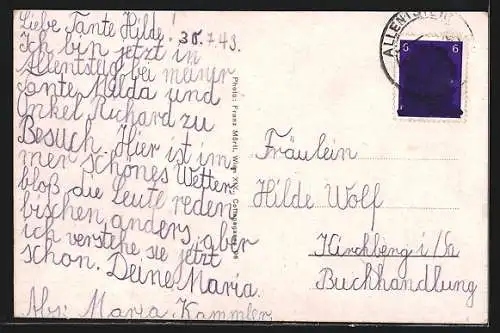 Liebe Tante Hilde! 30.7.43.
Ich bin jetzt in
Allentsteig bei meiner
Tante Milda und
Onkel Richard zu
Besuch. Hier ist im-
mer schönes Wetter
bloß die Leute reden
bischen anders, aber
ich verstehe sie jetzt
schon. Deine Maria.
Abs: Maria Kammler
Photo: Franz Mörtl, Wien XIX,
ALLENTSTEIG
6 6
Fräulein
Hilde Wolf
Kirchberg i/Sa
Buchhandlung